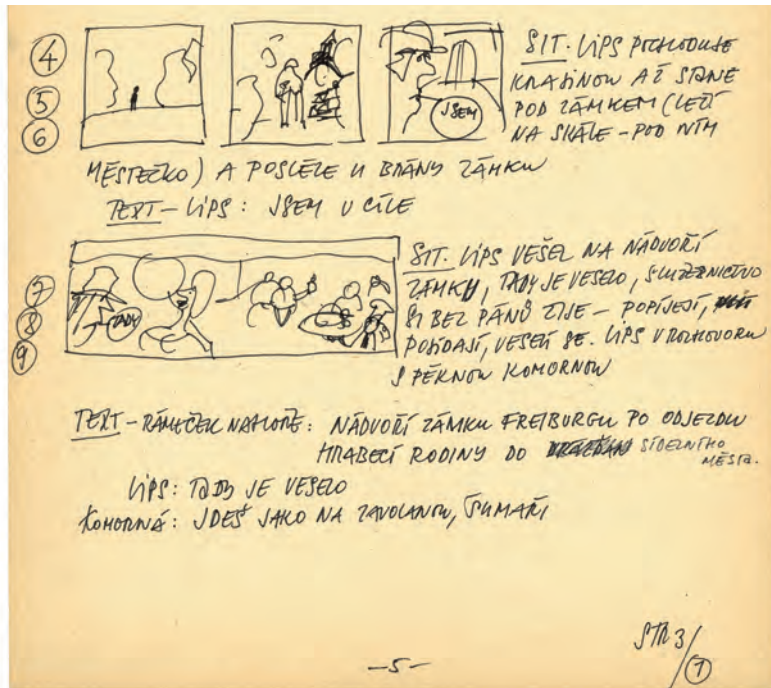 4
5
6
JSEM
SIT. LIPS POCHODUJE
KRAJINOU AŽ STANE
POD ZÁMKEM (LEŽÍ
NA SKÁLE – POD NÍM
MĚSTEČKO) A POSLÉZE U BRÁNY ZÁMKU
TEXT – LIPS: JSEM V CÍLE
7
8
9
TADY
SIT. LIPS VEŠEL NA NÁDVOŘÍ
ZÁMKU, TADY JE VESELO, SLUŽEBNICTVO
SI BEZ PÁNŮ ŽIJE – POPÍJEJÍ,
POJÍDAJÍ, VESELÍ SE. LIPS V ROZHOVORU
S PĚKNOU KOMORNOU
TEXT – RÁMEČEK NAHOŘE: NÁDVOŘÍ ZÁMKU FREIBURGU PO ODJEZDU
HRABĚCÍ RODINY DO SÍDELNÍHO
MĚSTA.
LIPS: TADY JE VESELO
KOMORNÁ: JDEŠ JAKO NA ZAVOLANOU, ŠUMAŘI
STR 3/1
–5–